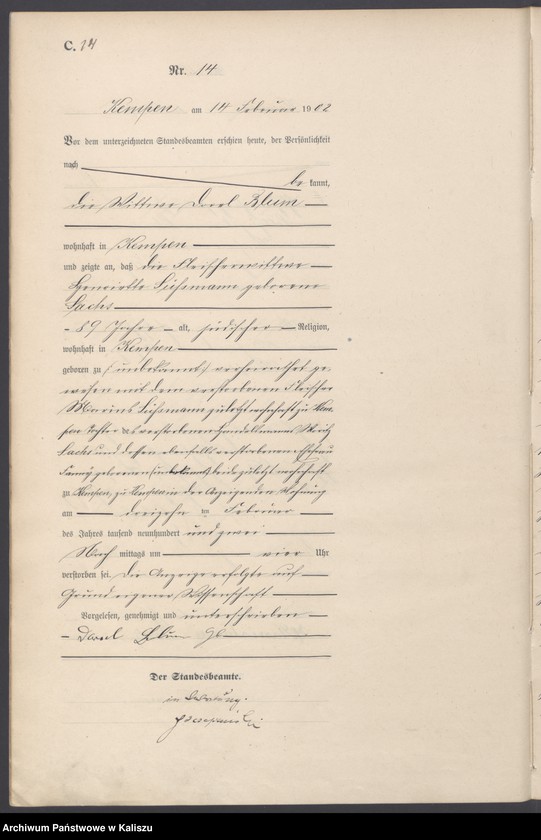 C. 14
Nr. 14
Kempen am 14 Februar 1902
Vor dem unterzeichneten Standesbeamten erschien heute, der Persönlichkeit
nach
be kannt,
die Wittwe Blum
wohnhaft in Kempen
und zeigte an, daß die Fleischerwittwe
Henriette Süßmann geborene
Sachs
89 Jahre alt, jüdischer Religion,
wohnhaft in Kempen
geboren zu (unbekannt) verheirathet ge-
wesen mit dem verstorbenen Fleischer
Marcus Süßmann zuletzt wohnhaft zu Kem-
pen Tochter des verstorbenen Handelsmannes
Sachs und dessen ebenfalls verstorbenen Ehefrau
Fanny geborenen (unbekannt) beide zuletzt wohnhaft
zu Kempen, zu Kempen in der Anzeigenden Wohnung
am dreizehn ten Februar
des Jahres tausend neunhundert und zwei
Nach mittags um vier Uhr
verstorben sei. Die Anzeige erfolgte auf
Grund eigener Wissenschaft
Vorgelesen, genehmigt und unterschrieben
Blum
Der Standesbeamte.
in Vertretung.
Archiwum Państwowe w Kaliszu